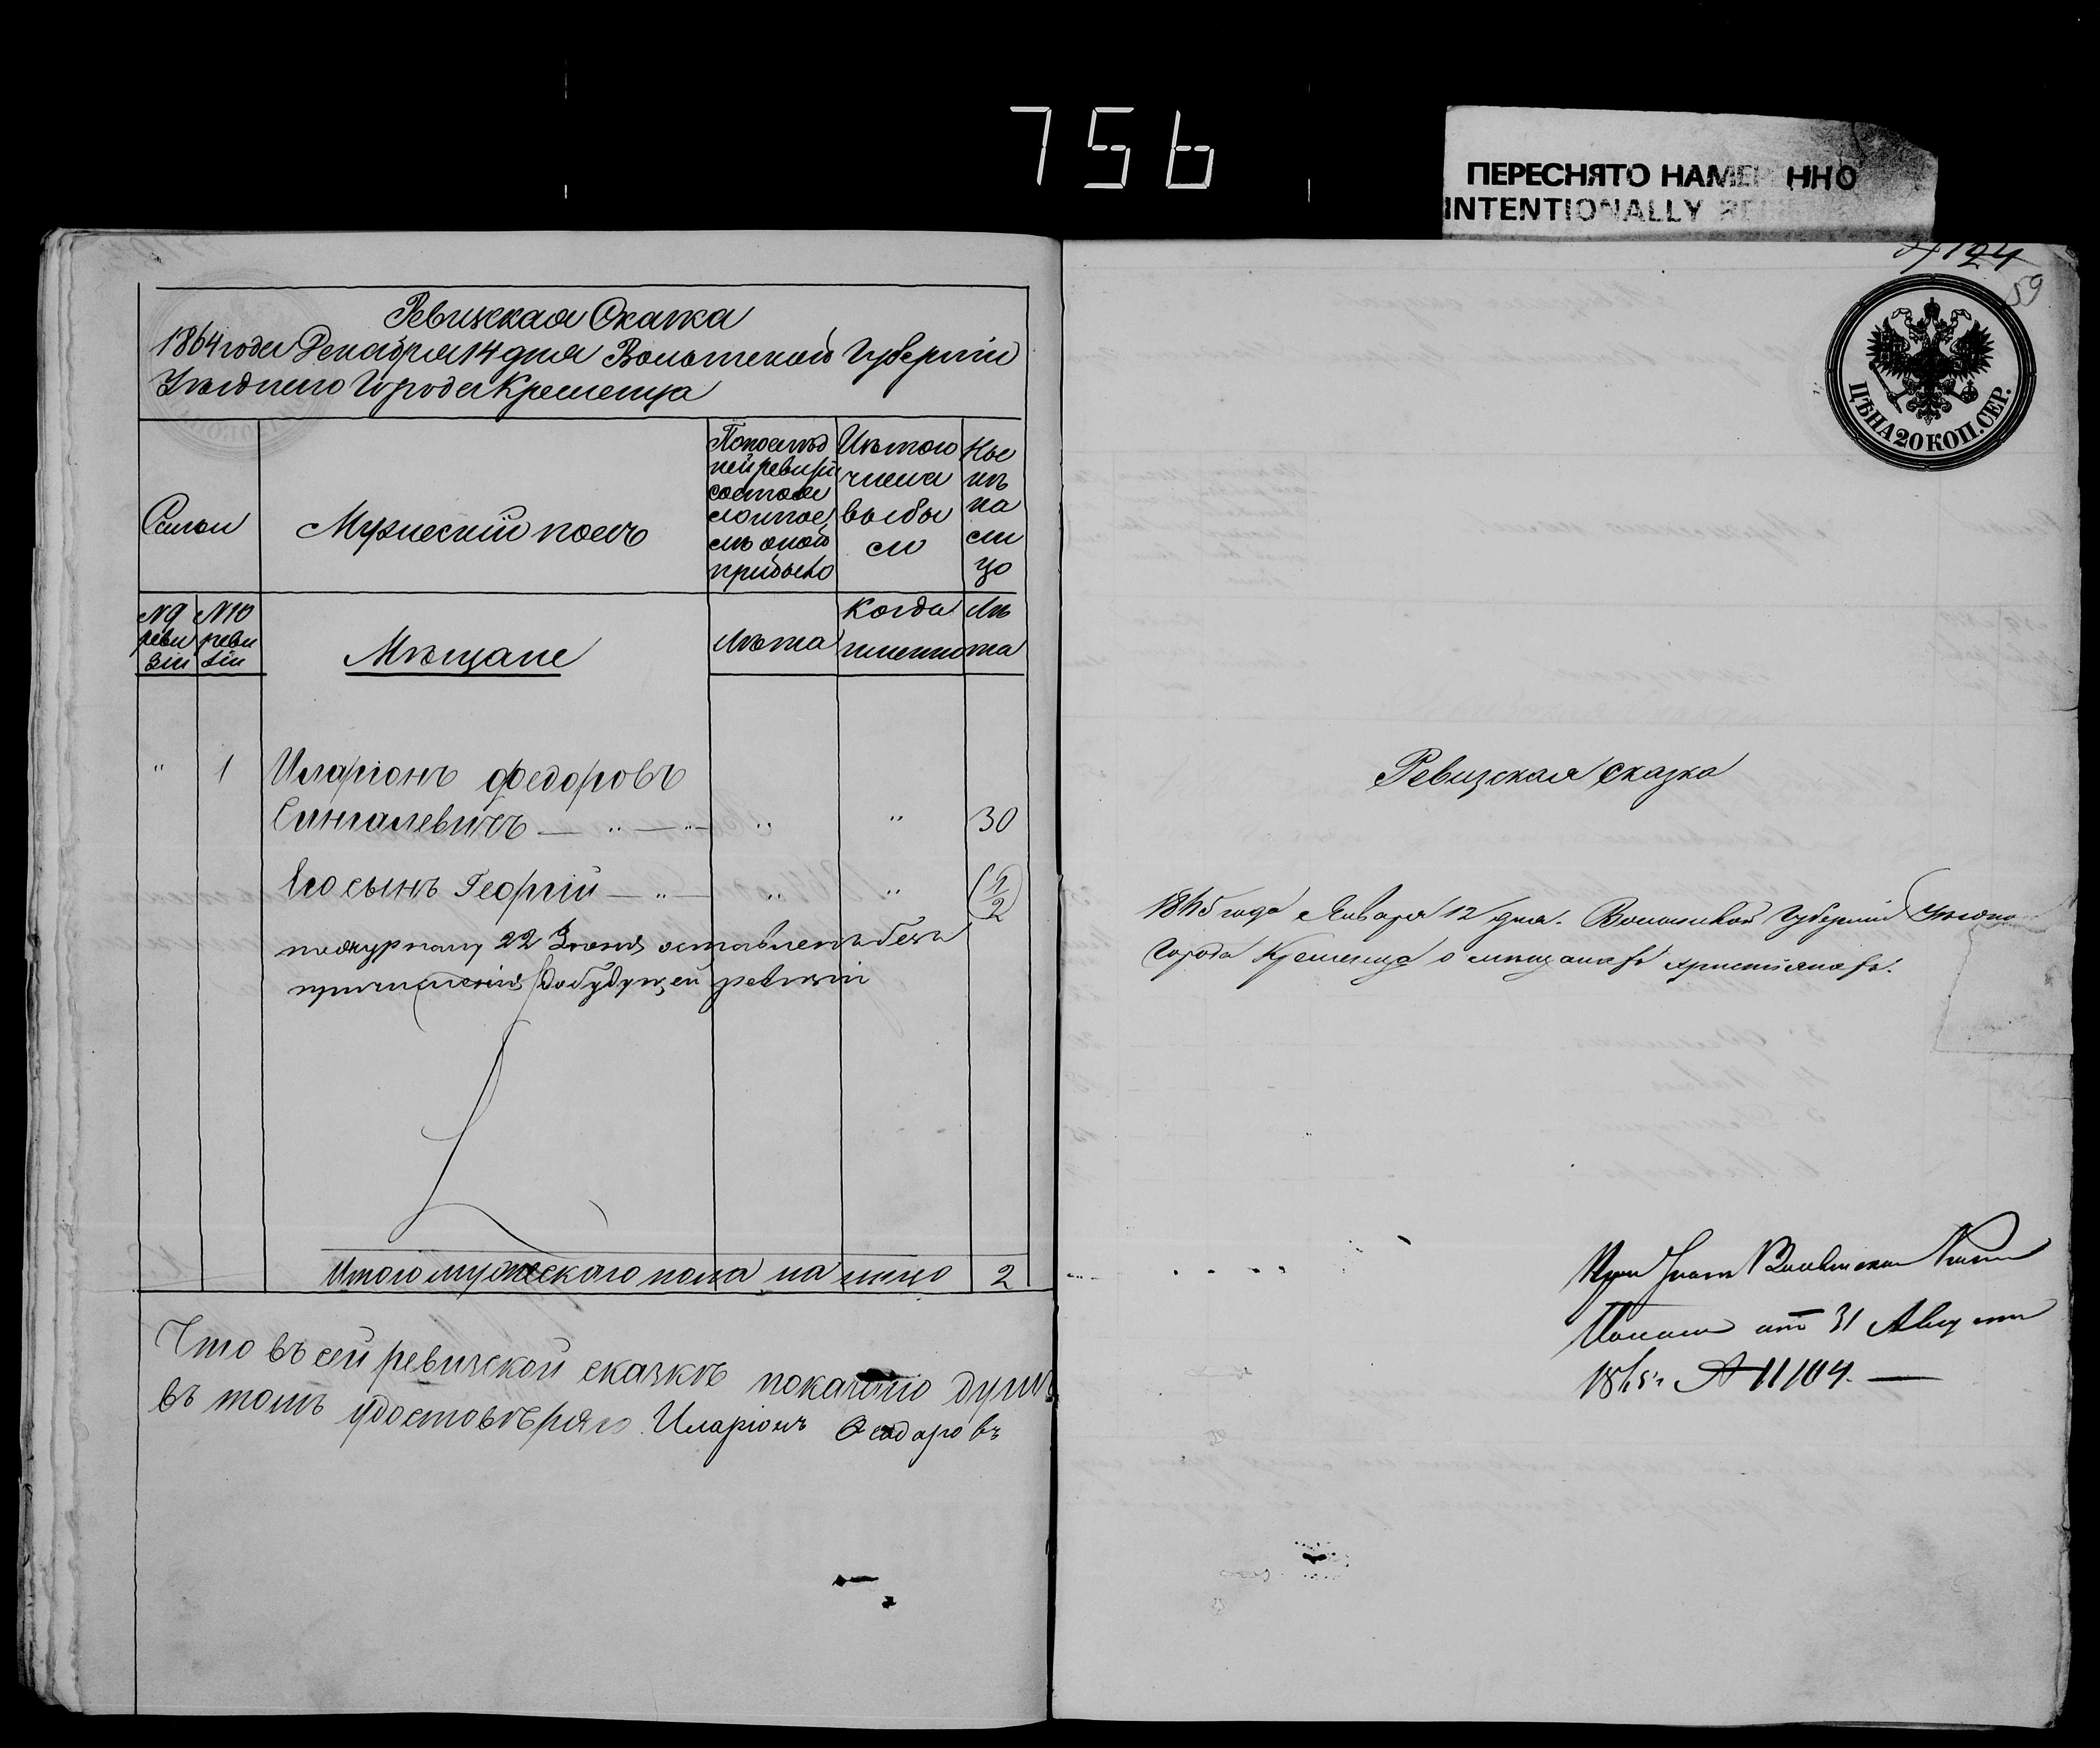 756
ПЕРЕСНЯТО НАМЕР ННО
INTENTIONALLY
Ревизская Сказка
1864 года Декабря 14 дня Волынской Губерніи
Уѣзднаго Города Кременца
Семьи
Мужескій полъ
По послѣд
ней ревизіи
состоя
ло и пос
лѣ оной
прибыло
Изъ того
числа
выбы
ло
Ны
нѣ
на
ли
цо
№ 9
реви
зіи
№ 10
реви
зіи
Мѣщане
Лѣта
Когда
именно
Лѣ
та
" 1 Иларіонъ Федоровъ
Сингалевичъ — " — " — " " 30
Его сынъ Георгій — " — " " (1/2)
по журналу 22 Іюня оставленъ безъ
причисленія до будущей ревизіи
Итого мужескаго пола на лицо 2
Что въ сей ревизской сказкѣ показано душъ
въ томъ удостовѣряю Иларіонъ Феодоровъ
124
59
ЦѢНА 20 КОП. СЕР.
Ревизская сказка
1865 года Января 12 дня. Волынской Губерніи Уѣздно
Города Кременца о мѣщанахъ христіанахъ.
При Указѣ Волынской Казен
Палаты отъ 31 Августа
1865 г. № 11104. —